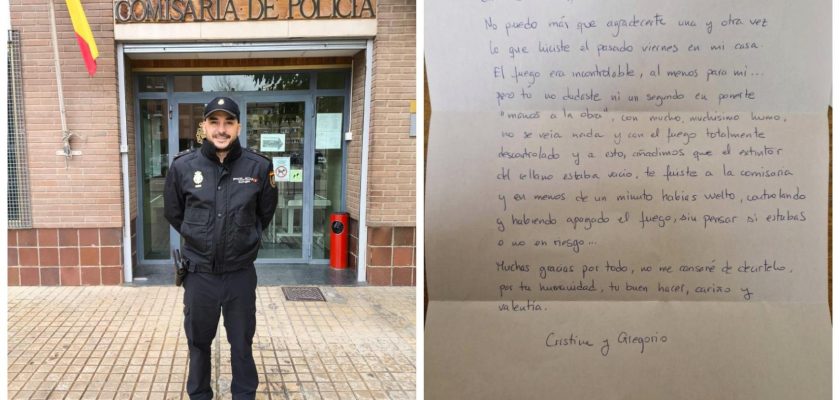 COMISARÍA DE POLICÍA
No puedo más que agradecerte una y otra vez
lo que hiciste el pasado viernes en mi casa.
El fuego era incontrolable, al menos para mi...
pero tú no dudaste ni un segundo en ponerte
"manos a la obra", con mucho, muchísimo humo,
no se veia nada y con el fuego totalmente
descontrolado y a esto, añadimos que el extintor
del rellano estaba vacio, te fuiste a la comisaria
y en menos de un minuto habias vuelto, controlando
y habiendo apagado el fuego, sin pensar si estabas
o no en riesgo...
Muchas gracias por todo, no me cansaré de decirtelo,
por tu humanidad, tu buen hacer, cariño y
valentía.
Cristina y Gregorio